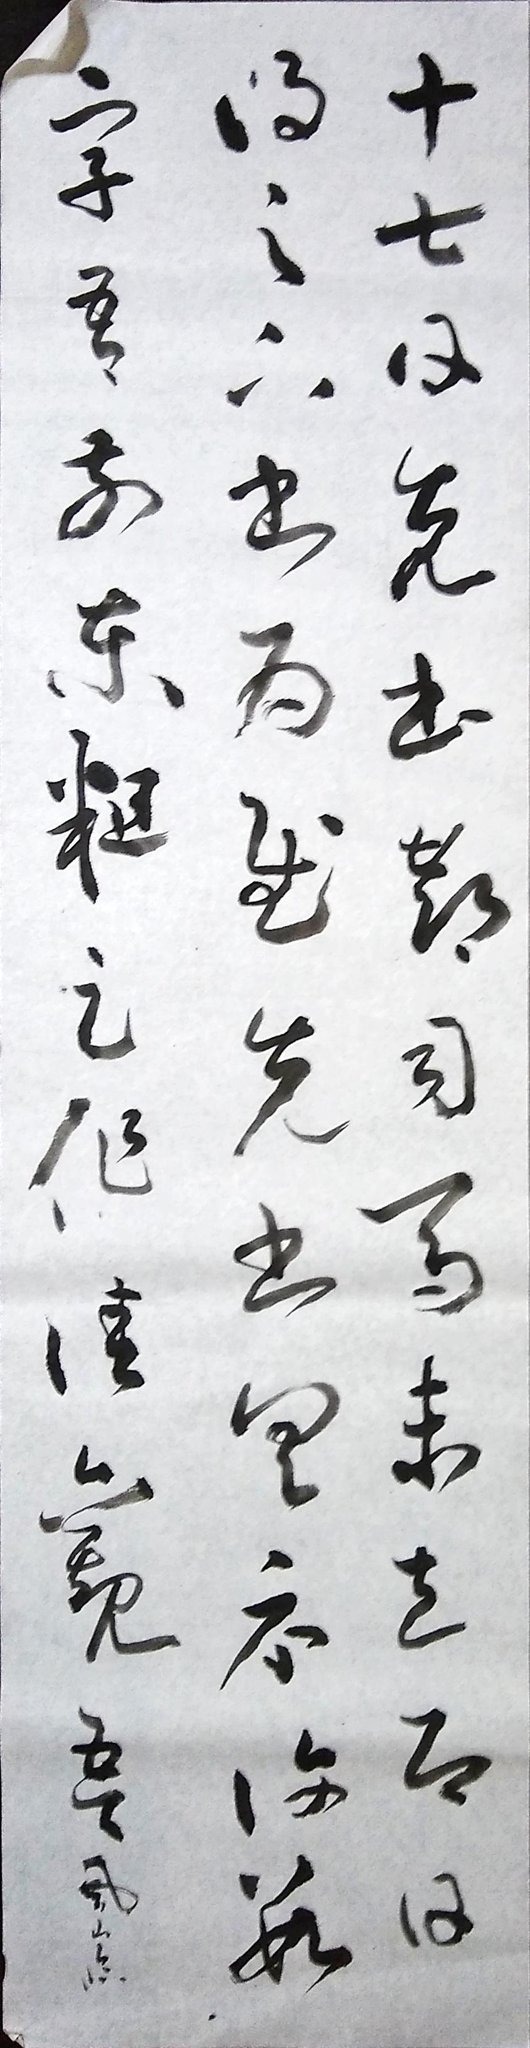 十七日先書郗司馬未去即日
得足下書為慰先書以具示復數
字吾前東粗足作佳觀吾